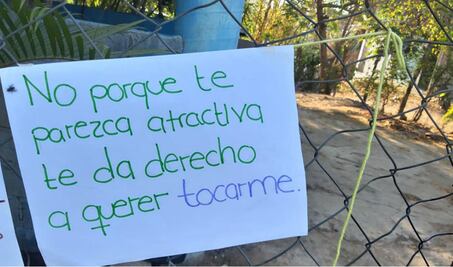 No porque te
parezca atractiva
te da derecho
a querer tocarme.